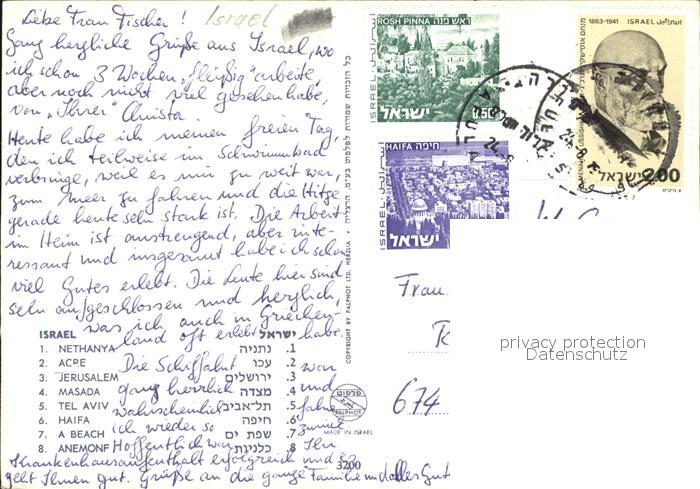 Liebe Frau Fischer!
Israel
Ganz herzliche Grüße aus Israel, wo
ich schon 3 Wochen „fleißig" arbeite,
aber noch nicht viel gesehen habe,
von „Ihrer" Christa.
Heute habe ich meinen freien Tag,
den ich teilweise im Schwimmbad
verbringe, weil es mir zu weit war,
zum Meer zu fahren und die Hitze
gerade heute sehr stark ist. Die Arbeit
im Heim ist anstrengend, aber inte-
ressant und insgesamt habe ich schon
viel Gutes erlebt. Die Leute hier sind
sehr aufgeschlossen und herzlich,
was ich auch in Griechen-
land oft erlebt habe.
Die Schiffahrt war
ganz herrlich und
wahrscheinlich fahre
ich wieder so zurück.
Hoffentlich war Ihr
Krankenhausaufenthalt erfolgreich und es
geht Ihnen gut. Grüße an die ganze Familie und alles Gut
ISRAEL ישראל
1. NETHANYA נתניה .1
2. ACRE עכו .2
3. JERUSALEM ירושלים .3
4. MASADA מצדה .4
5. TEL AVIV תל-אביב .5
6. HAIFA חיפה .6
7. A BEACH שפת ים .7
8. ANEMONE כלניות .8
COPYRIGHT BY PALPHOT LTD. HERZLIA
כל הזכויות שמורות לפלפוט בע"מ, הרצליה
פלפוט
PALPHOT
MADE IN ISRAEL
3200
ROSH PINNA ראש פנה
ISRAEL
0.50
ישראל
HAIFA חיפה
ISRAEL
ישראל
1863-1941 ISRAEL
מנחם אוסישקין
MENAHEM USSISHKIN
ישראל 2.00
Frau
674
privacy protection
Datenschutz